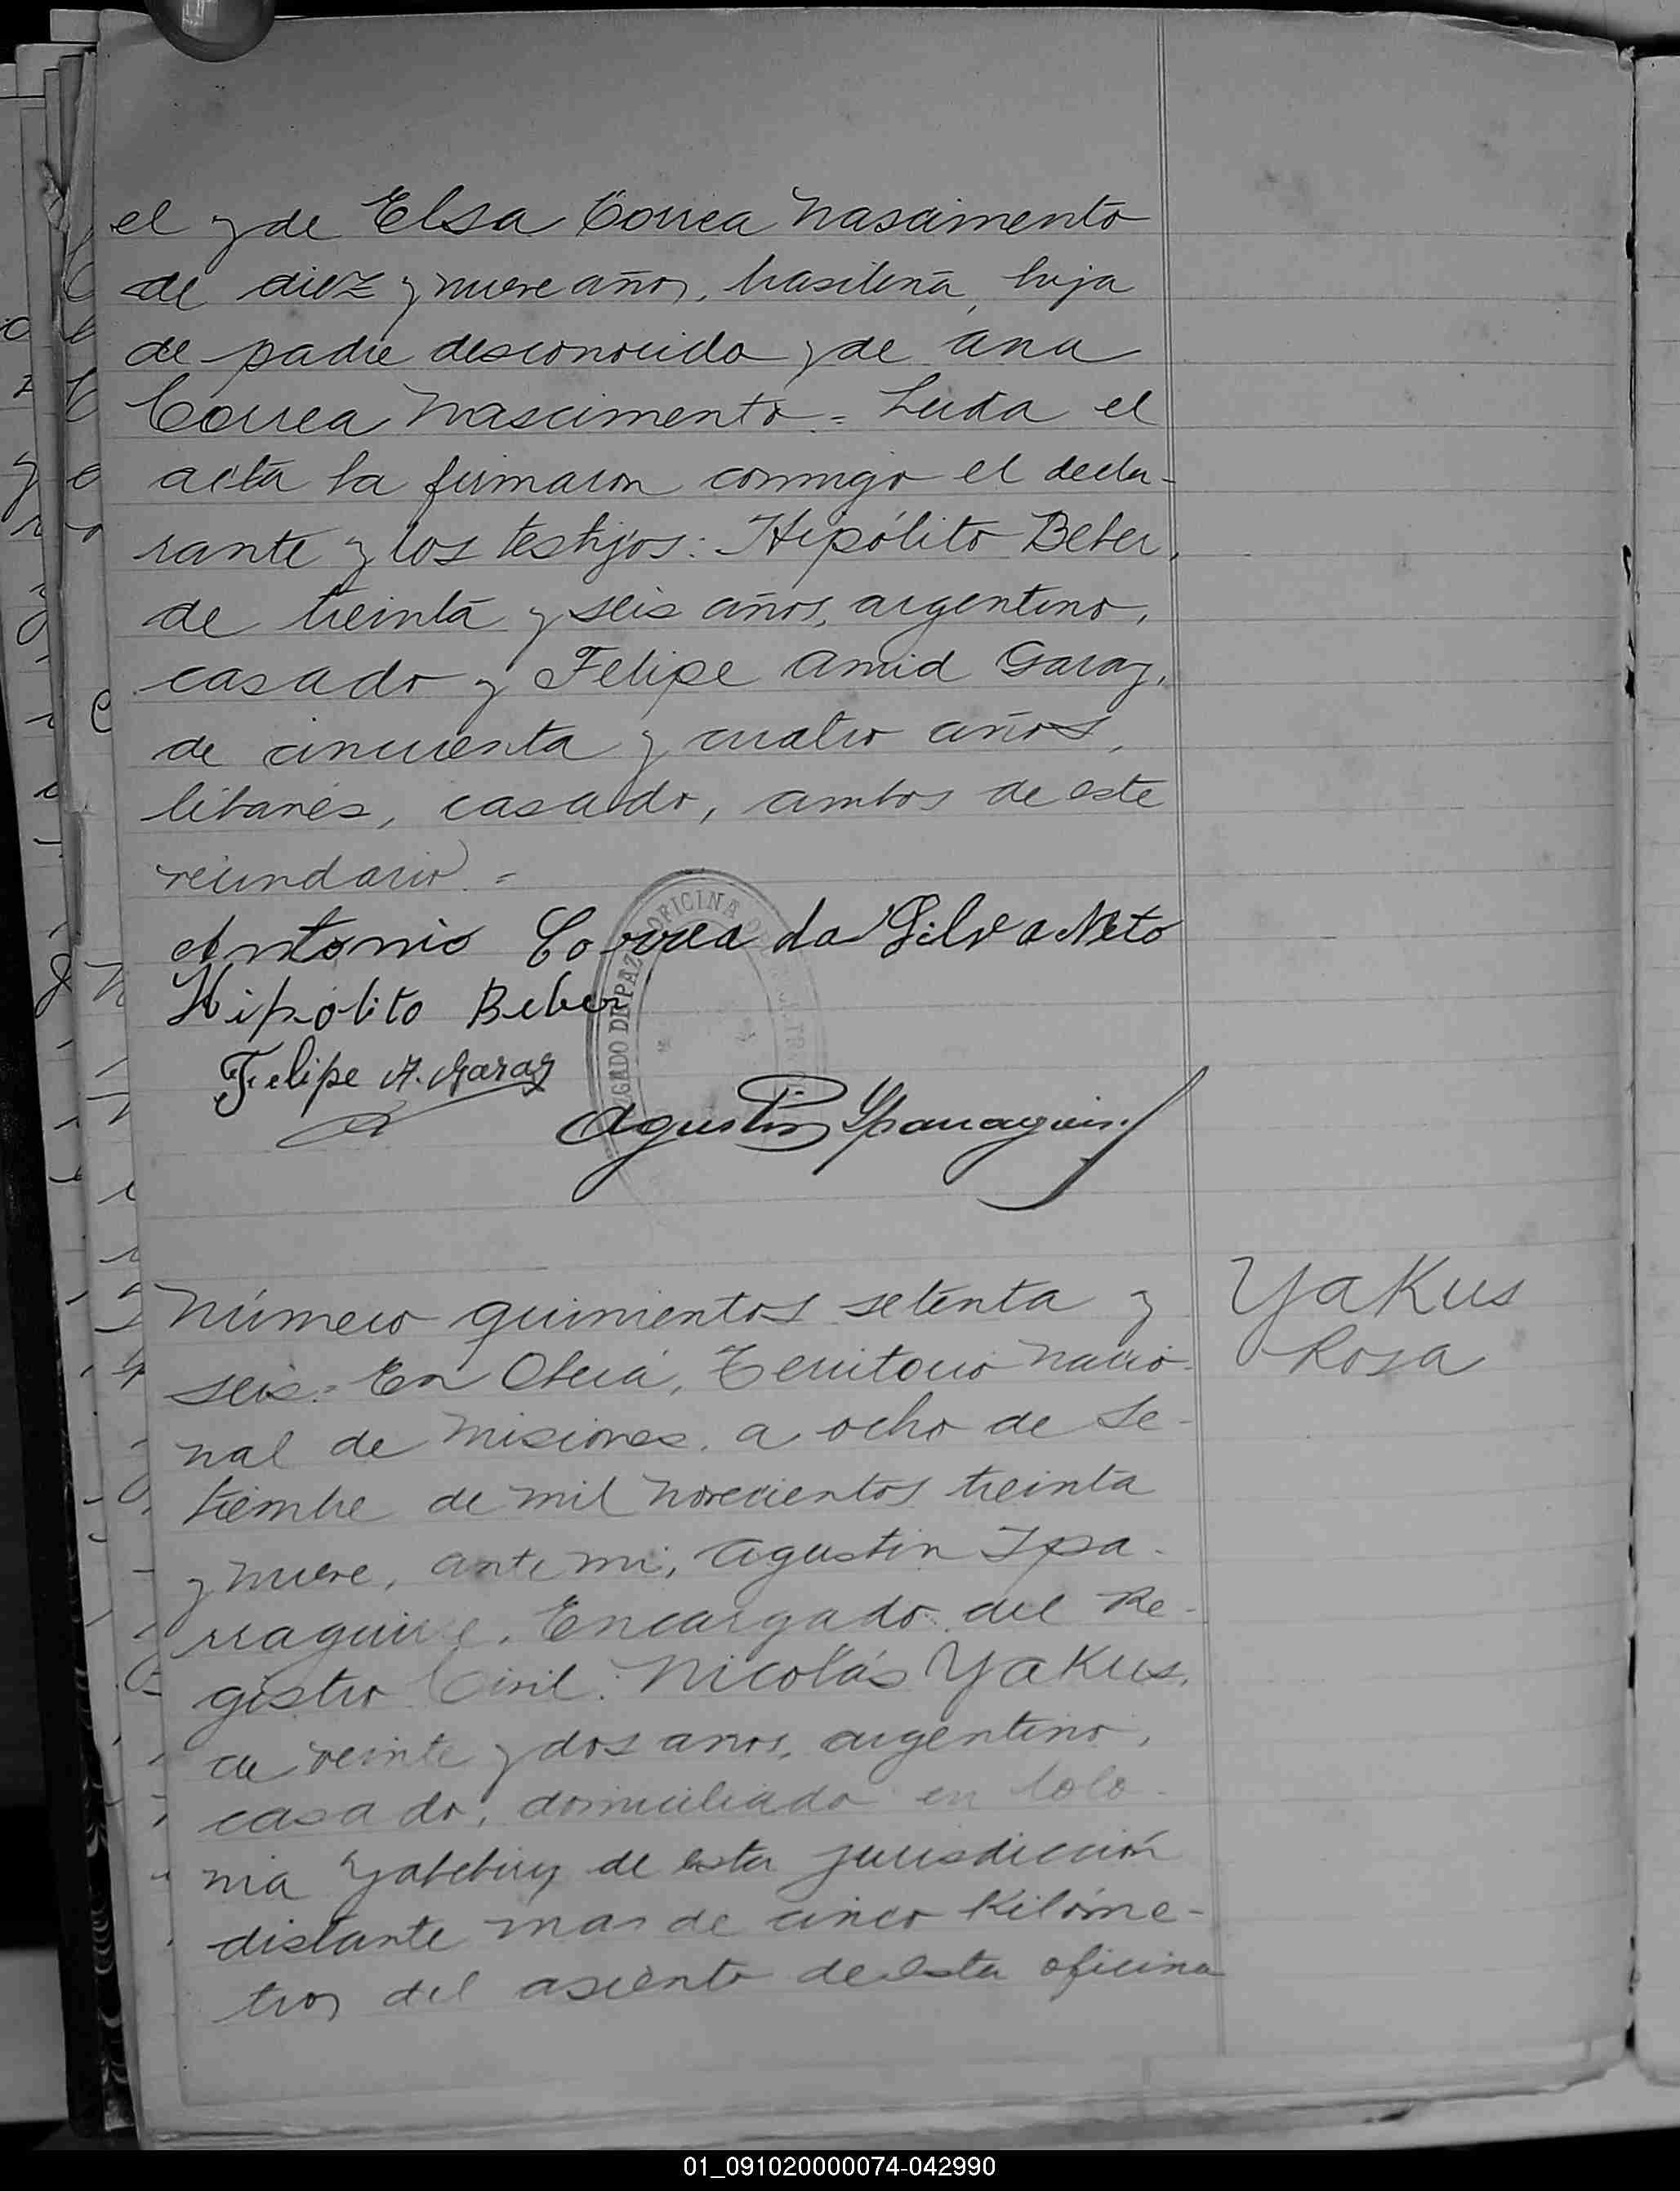 el y de Elsa Correa Nascimento
de diez y nueve años, brasileña, hija
de padre desconocido y de Ana
Correa Nascimento.= Leída el
acta la firmaron conmigo el decla-
rante y los testigos: Hipólito Beber,
de treinta y seis años, argentino,
casado y Felipe Amid Garay,
de cincuenta y cuatro años,
libanés, casado, ambos de este
vecindario.=
Antonio Correa da Silva Neto
Hipólito Beber
Felipe A. Garay
Agustín Yparraguirre
OFICINA
JUZGADO DE PAZ
Número quinientos setenta y
seis.= En Oberá, Territorio Nacio-
nal de Misiones, a ocho de Se-
tiembre de mil novecientos treinta
y nueve, ante mi, Agustín Ipa-
rraguirre, Encargado del Re-
gistro Civil: Nicolás Yakus,
de veinte y dos años, argentino,
casado, domiciliado en Colo-
nia Yabebiry de esta jurisdicción
distante mas de cinco kilóme-
tros del asiento de esta oficina
Yakus
Rosa
01_091020000074-042990